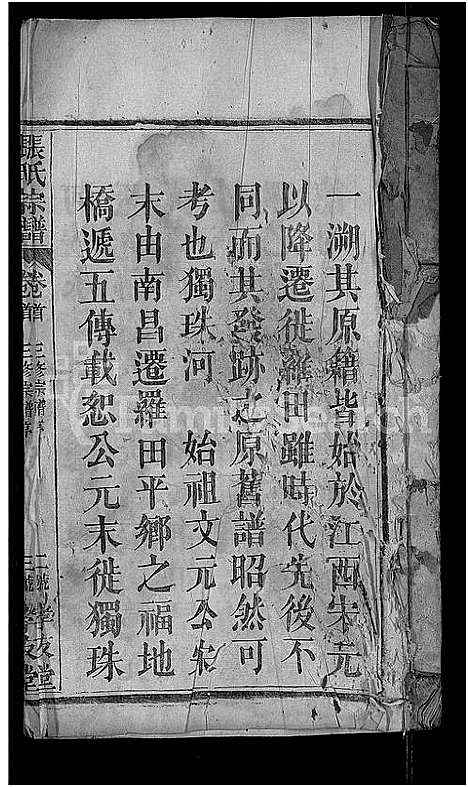 一溯其原籍皆始於江西宋元
以降遷徙羅田雖時代先後不
同而其發跡之原舊譜昭然可
考也獨珠河 始祖文元公宋
末由南昌遷羅田平鄉之福地
橋遞五傳載恕公元末徙獨珠
張氏宗譜 卷首 三修宗譜序 學友堂